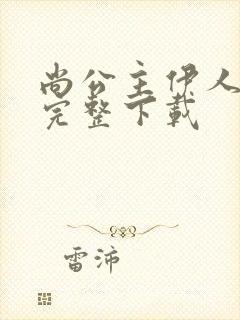 尚公主伊人
完整下载
雷沛